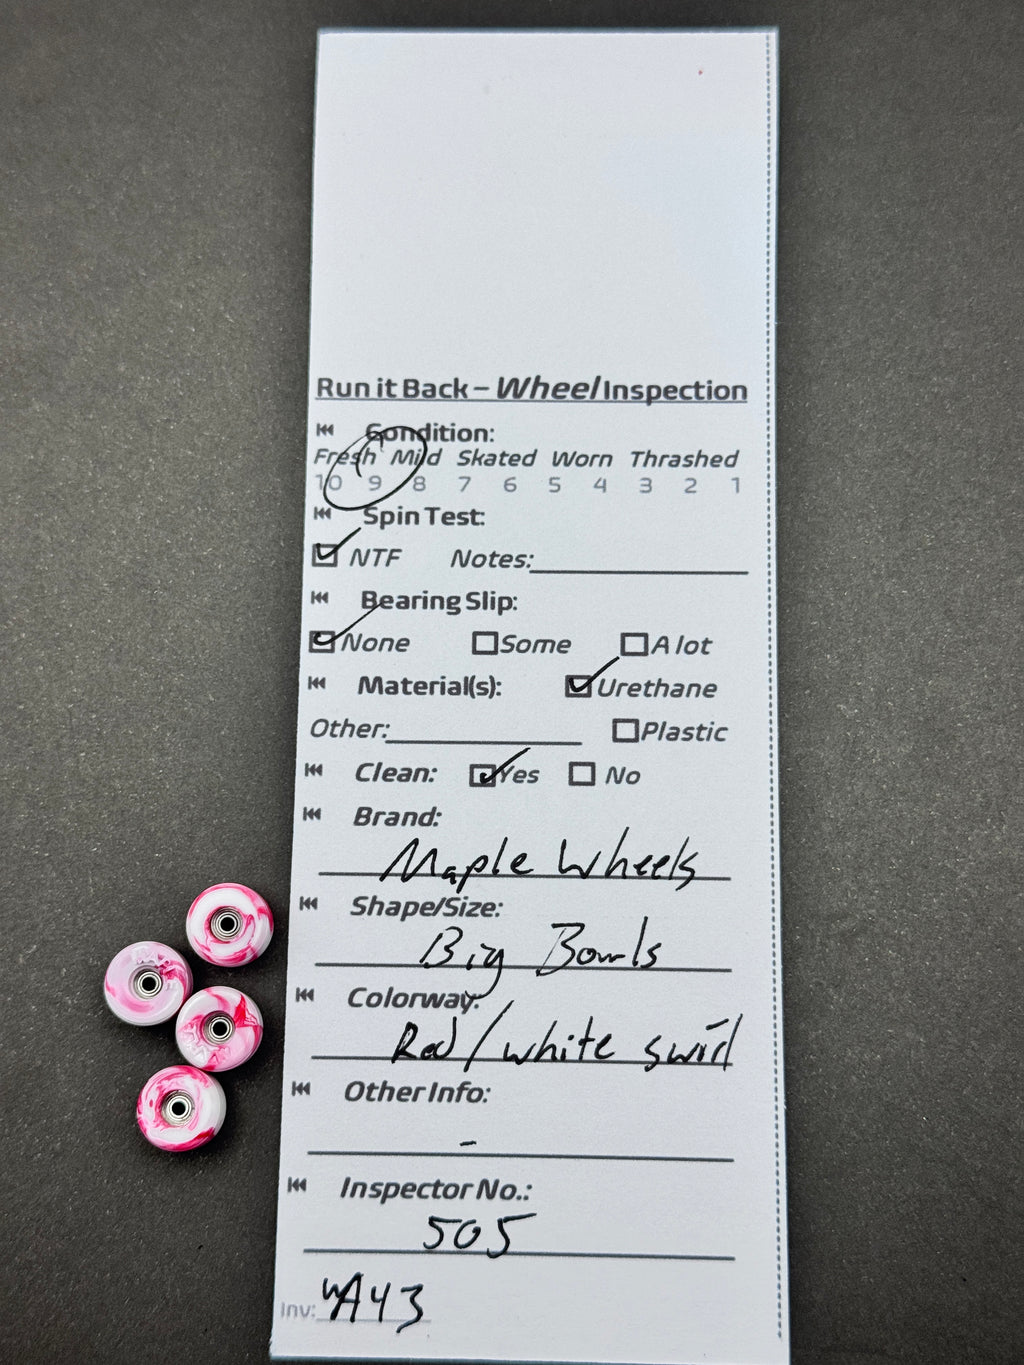 Run it Back – Wheel Inspection
Condition:
Fresh Mild Skated Worn Thrashed
10 9 8 7 6 5 4 3 2 1
Spin Test:
NTF Notes:
Bearing Slip:
None Some A lot
Material(s): Urethane
Other: Plastic
Clean: Yes No
Brand:
Maple Wheels
Shape/Size:
Big Bowls
Colorway:
Red/white swirl
Other Info:
-
Inspector No.:
505
Inv: WA43